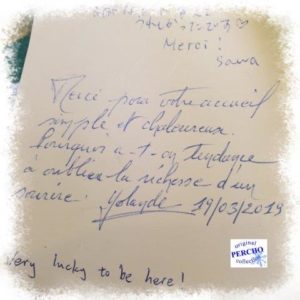 Merci !
Sawa
Merci pour votre accueil
simple et chaleureux.
Pourquoi a-t-on tendance
à oublier la richesse d'un
sourire. Yolande 19/03/2019
Very lucky to be here !
original
PERCHO
collection